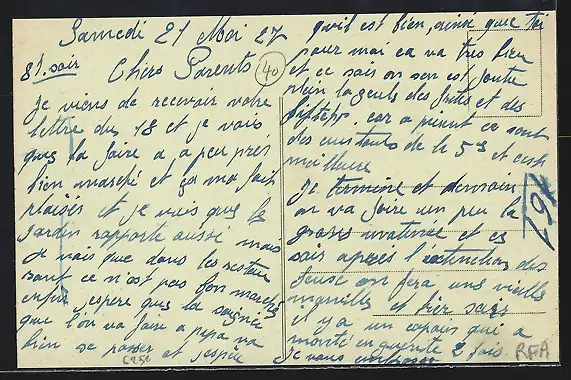 Samedi 21 Mai 27
8h soir Chers Parents
40
Je viens de recevoir votre
lettre du 18 et je vois
que la foire a a peu près
bien marché et ça ma fait
plaisirs et je vois que le
jardin rapporte aussi mais
je vois que dans les
sauf ce n'est pas bon marché
enfin j'espere que la
que l'on va faire a papa va
bien se passer et j'espère
qu'il est bien, ainsi que toi
pour moi ca va tres bien
et ce soir on s'en est foutu
plein la gueule des frites et des
car a present ce sont
des de la 5e et c'est
meilleure
Je termine et demain
on va faire un peu la
grasse matinee et ce
soir apres l'extinction des
feux on fera une vieille
manille et hier soir
il y a un copain qui a
monté en 2 fois.
je vous embrasse
167
RFA